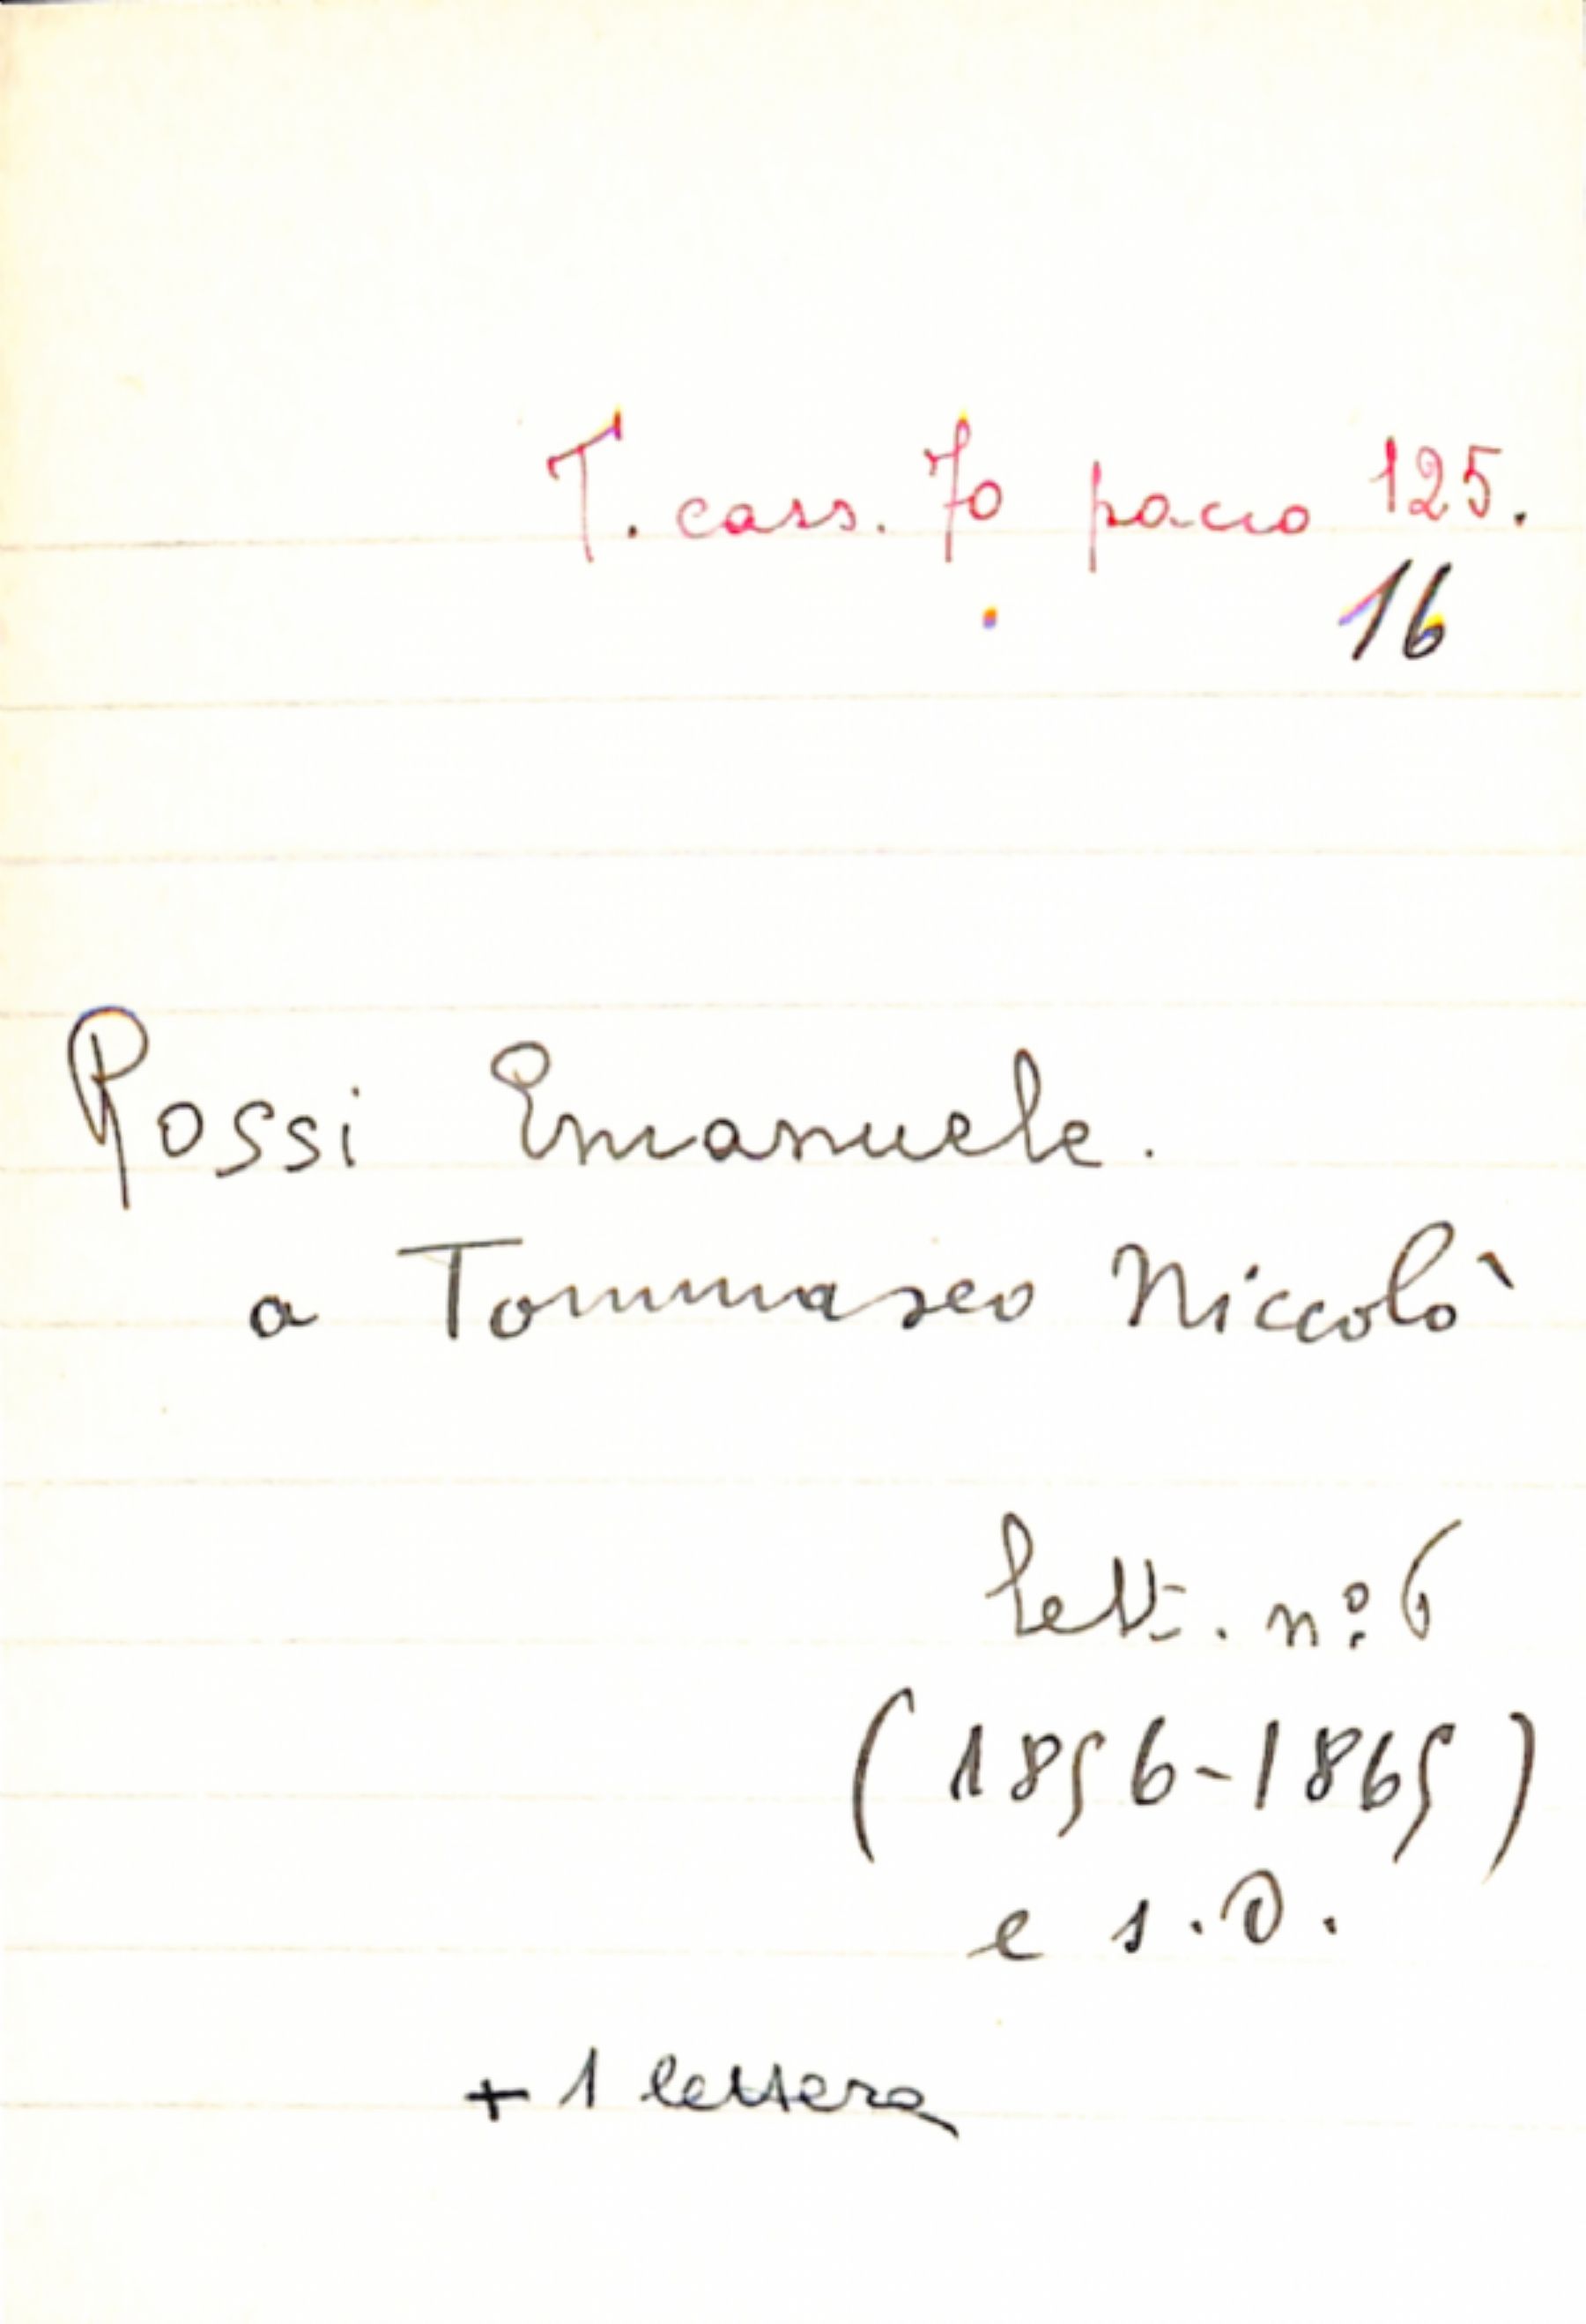 T. cass. 70 pacco 125.
16
Rossi Emanuele.
a Tommaseo Niccolò
lett. nº 6
(1856-1865)
e s.d.
+ 1 lettera